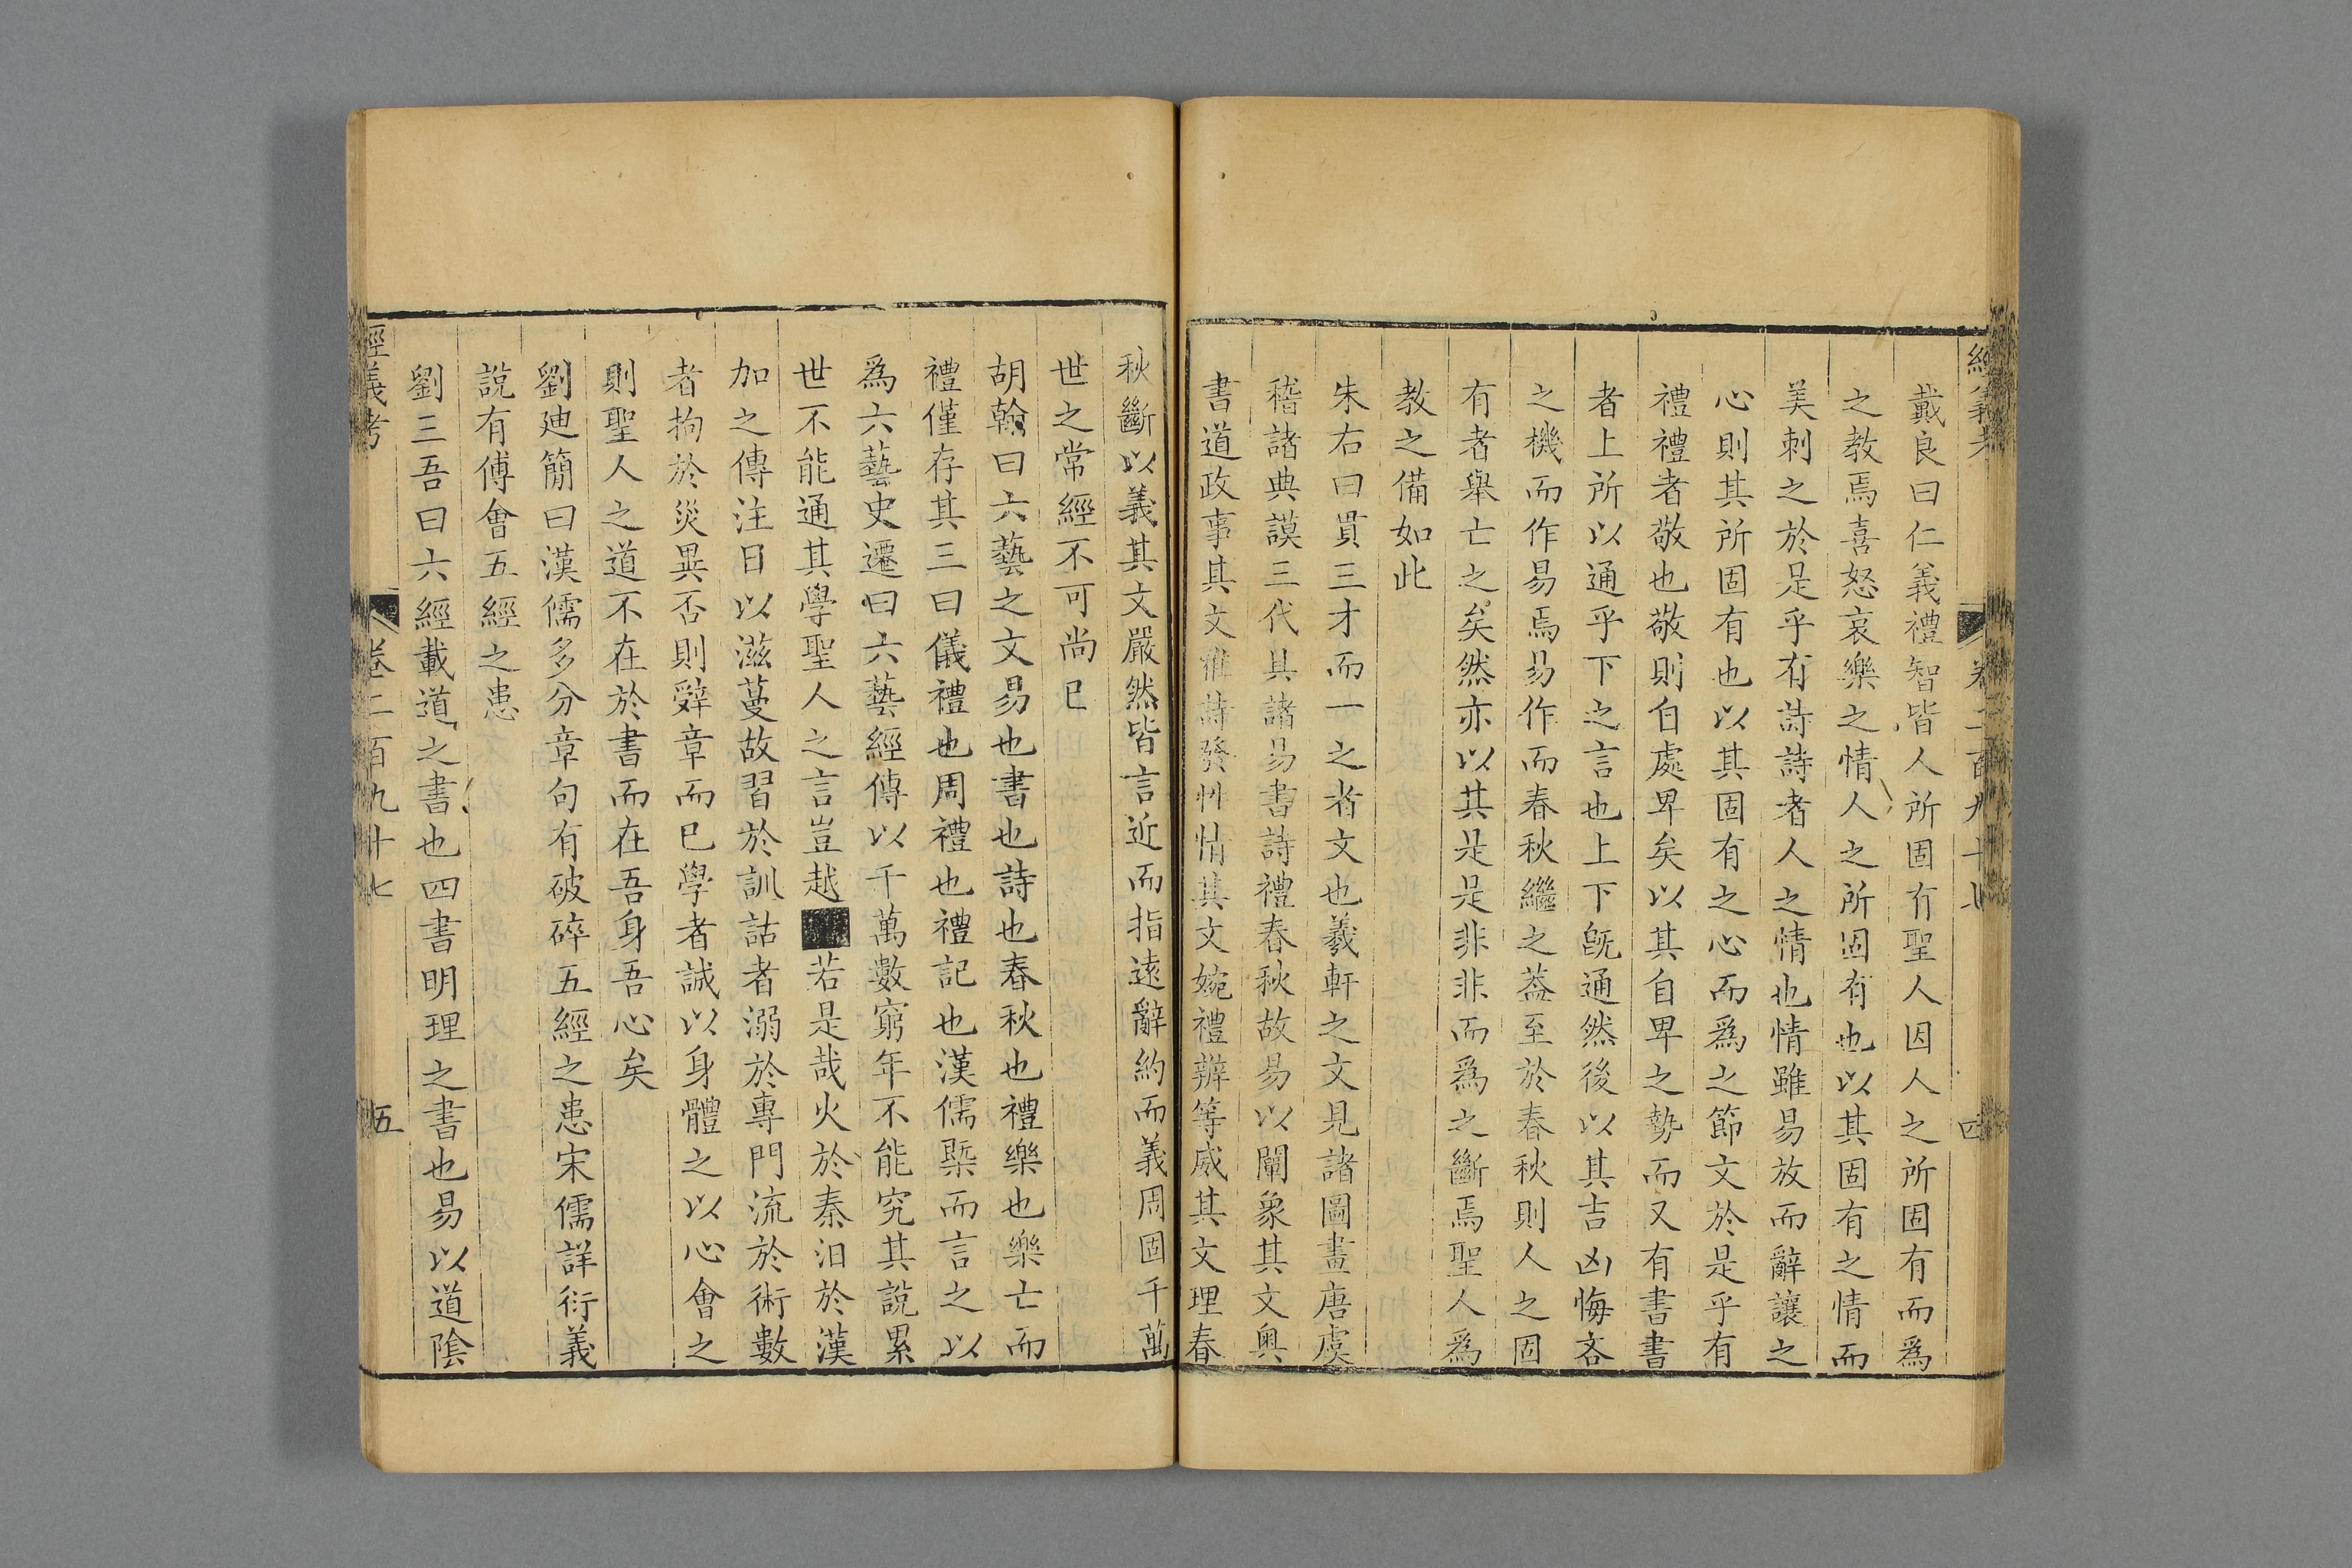 戴良曰仁義禮智皆人所固有聖人因人之所固有而爲
之教焉喜怒哀樂之情人之所固有也以其固有之情而
美刺之於是乎有詩詩者人之情也情雖易放而辭讓之
心則其所固有也以其固有之心而爲之節文於是乎有
禮禮者敬也敬則自處卑矣以其自卑之勢而又有書書
者上所以通乎下之言也上下旣通然後以其吉凶悔吝
之機而作易焉易作而春秋繼之葢至於春秋則人之固
有者舉亡之矣然亦以其是是非非而爲之斷焉聖人爲
教之備如此
朱右曰貫三才而一之者文也羲軒之文見諸圖畫唐虞
稽諸典謨三代具諸易書詩禮春秋故易以闡象其文奥
書道政事其文雅詩發性情其文婉禮辨等威其文理春
秋斷以義其文嚴然皆言近而指遠辭約而義周固千萬
世之常經不可尚已
胡翰曰六藝之文易也書也詩也春秋也禮樂也樂亡而
禮僅存其三曰儀禮也周禮也禮記也漢儒槩而言之以
爲六藝史遷曰六藝經傳以千萬數窮年不能究其說累
世不能通其學聖人之言豈越若是哉火於秦汩於漢
加之傳注日以滋蔓故習於訓詁者溺於專門流於術數
者拘於災異否則辤章而已學者誠以身體之以心會之
則聖人之道不在於書而在吾身吾心矣
劉廸簡曰漢儒多分章句有破碎五經之患宋儒詳衍義
說有傅會五經之患
劉三吾曰六經載道之書也四書明理之書也易以道陰
經義考 卷二百九十七 五
經義考 卷二百九十七 四